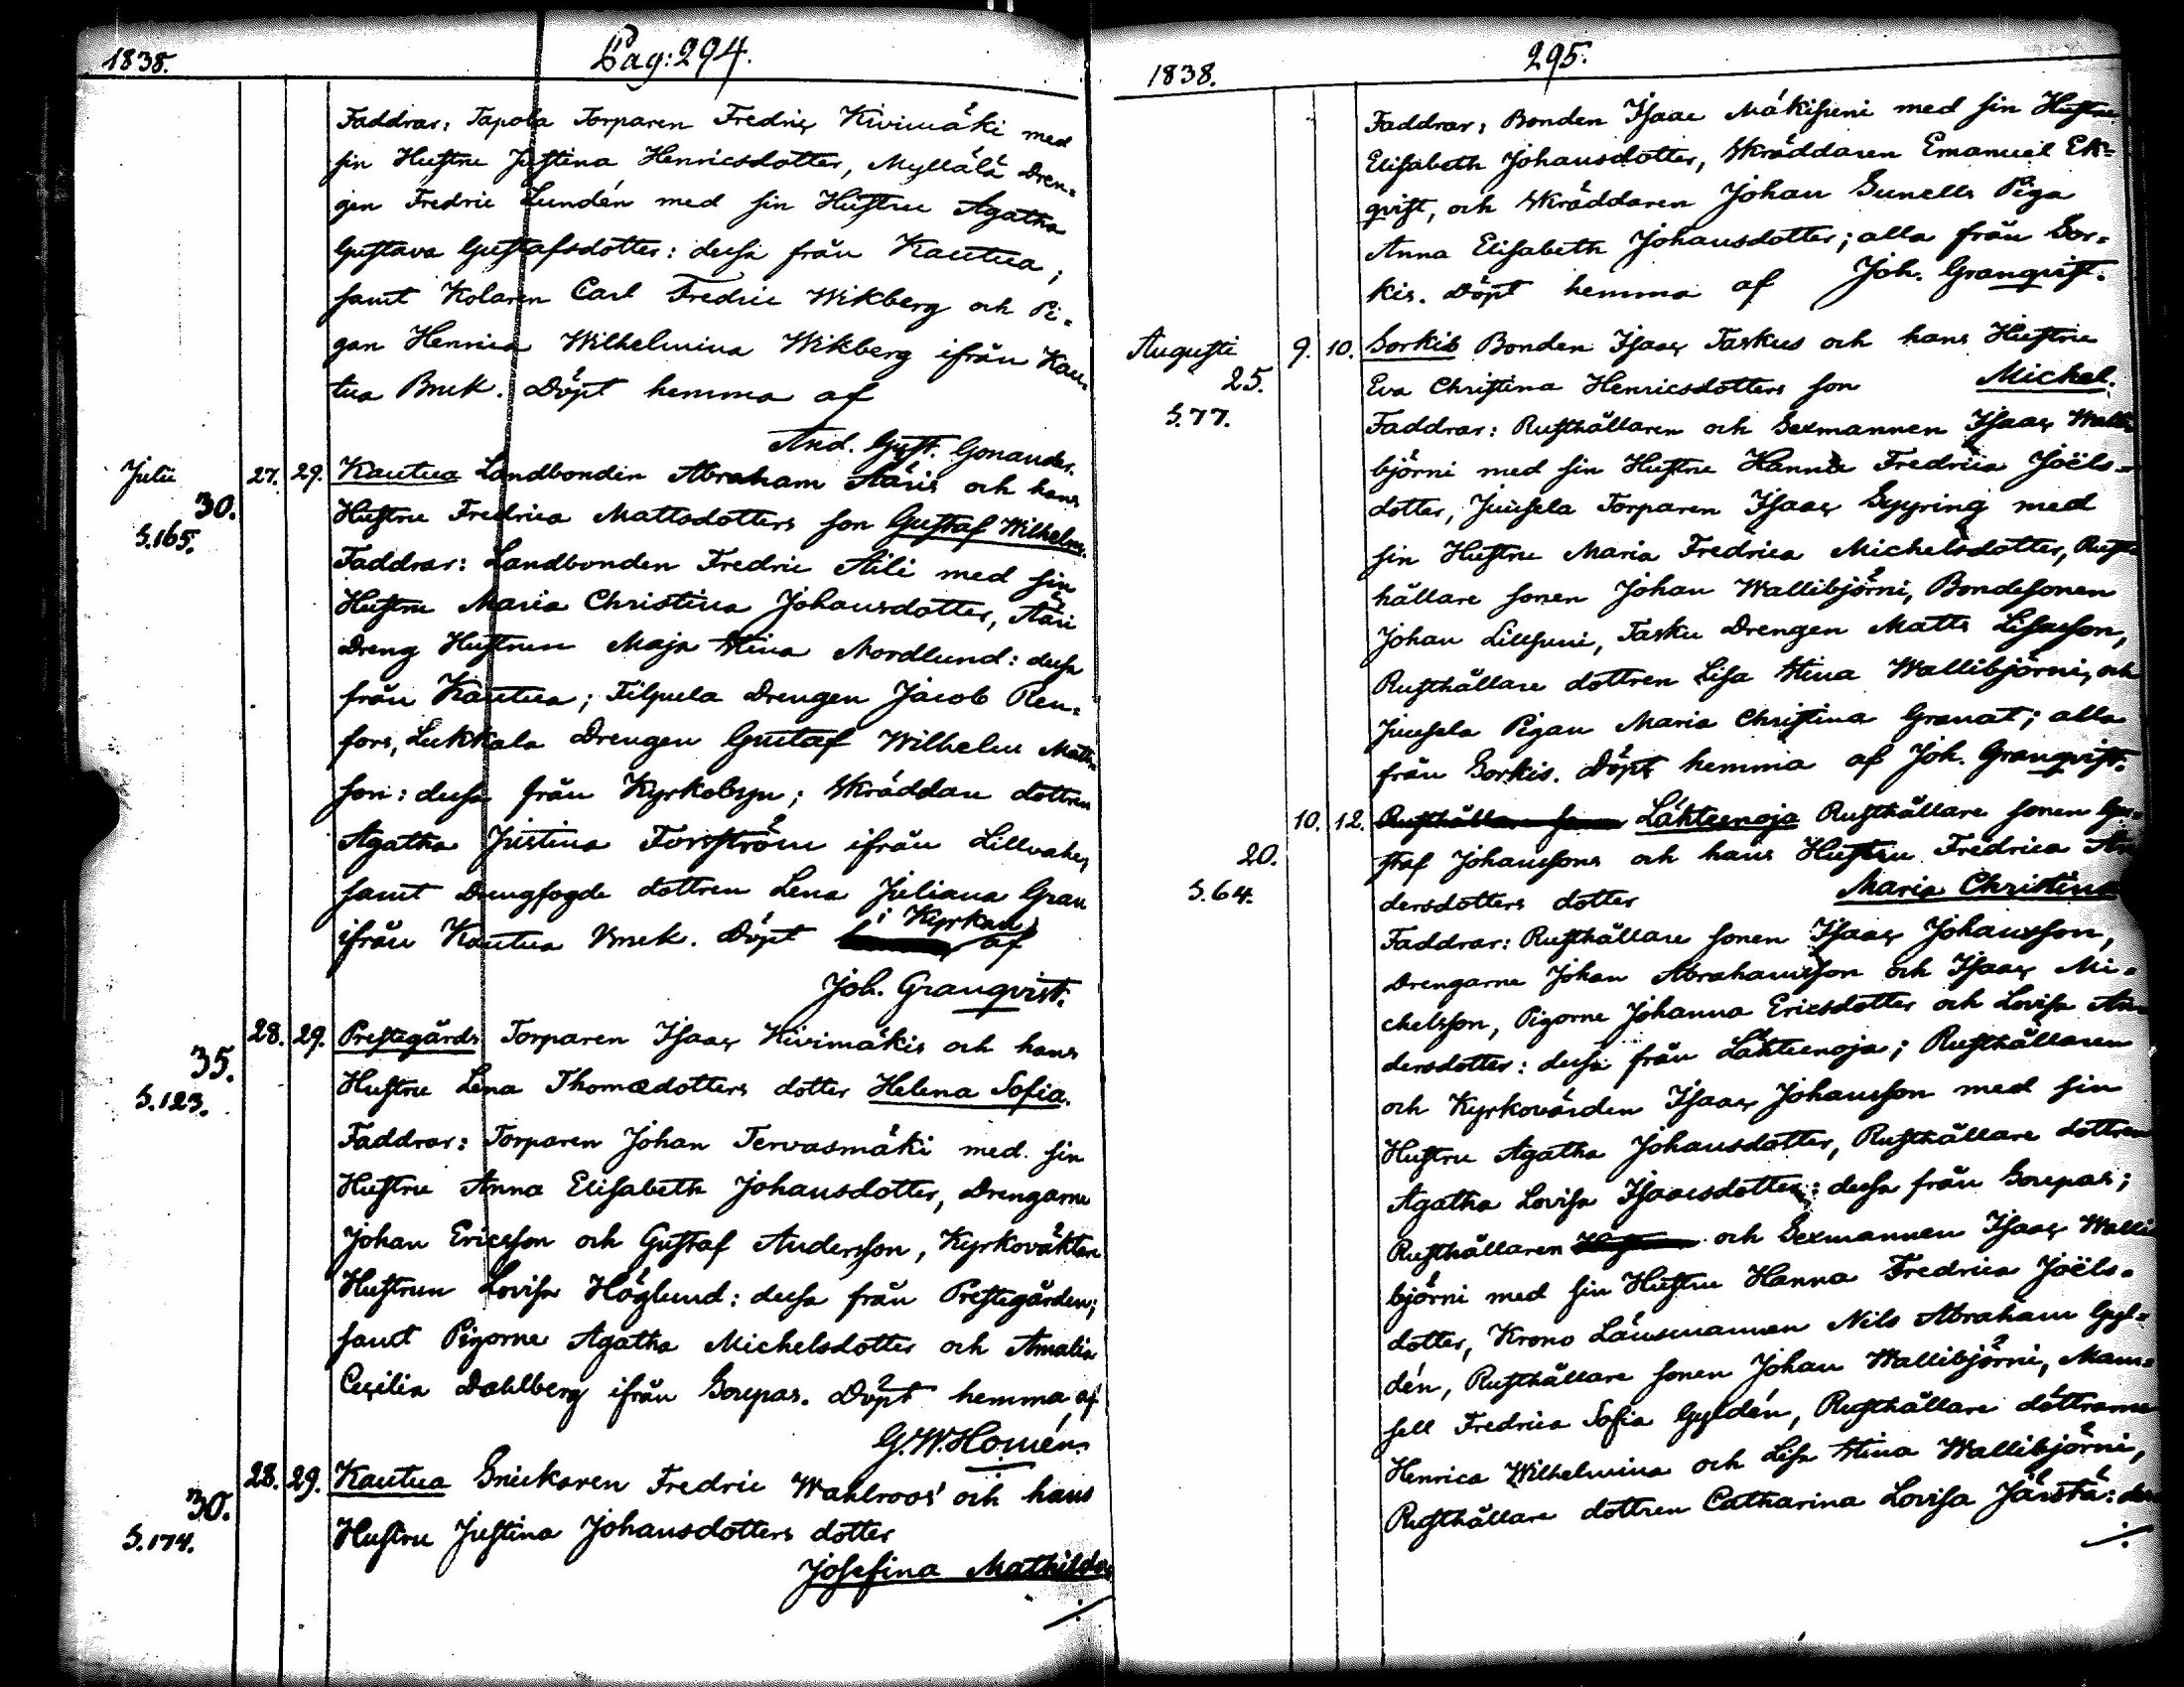 1838.
Pag: 294.
Faddrar: Tapola Torparen Fredric Kivimäki med
sin Hustru Justina Henricsdotter, Myllälä Dren-
gen Fredric Lundén med sin Hustru Agatha
Gustava Gustafsdotter: dessa från Kautua;
samt Kolaren Carl Fredric Wikberg och Pi-
gan Henrica Wilhelmina Wikberg ifrån Kau-
tua Bruk. Döpt hemma af
And. Gust. Gonander.
Julii 27. 29. Kautua Landbonden Abraham Ääris och hans
30. Hustru Fredrica Mattsdotters son Gustaf Wilhelm.
S.165. Faddrar: Landbonden Fredric Äili med sin
Hustru Maria Christina Johansdotter, Ääri
Dreng Hustrun Maja Stina Nordlund: dessa
från Kautua; Filpula Drengen Jacob Ren-
fors, Lukkala Drengen Gustaf Wilhelm Matts-
son: dessa från Kyrkobyn; Skräddare dottren
Agatha Justina Forsström ifrån Lillvaher
samt Drengfogde dottren Lena Juliana Gran
ifrån Kautua Bruk. Döpt i Kyrkan af
Joh. Granqvist.
28. 29. Prestegårds Torparen Isaac Kivimäkis och hans
35. Hustru Lena Thomædotters dotter Helena Sofia.
S.123.
Faddrar: Torparen Johan Tervasmäki med sin
Hustru Anna Elisabeth Johansdotter, Drengarne
Johan Ericsson och Gustaf Andersson, Kyrkoväktare
Hustrun Lovisa Höglund: dessa från Prestegården;
samt Pigorne Agatha Michelsdotter och Amalia
Cecilia Dahlberg ifrån Soupas. Döpt hemma af
G.W.Homén.
28. 29. Kautua Snickaren Fredric Wahlroos' och hans
30. Hustru Justina Johansdotters dotter
S.174.
Josefina Mathilda
./.
1838.
295.
Faddrar: Bonden Isaac Mäkisuni med sin Hustru
Elisabeth Johansdotter, Skräddaren Emanuel Ek-
qvist, och Skräddaren Johan Sunells Piga
Anna Elisabeth Johansdotter; alla från Sor-
kis. Döpt hemma af Joh. Granqvist.
Augusti 9. 10. Sorkis Bonden Isaac Taskus och hans Hustru
25. Eva Christina Henricsdotters son Michel.
S.77. Faddrar: Rusthållaren och Sexmannen Isaac Walli-
björni med sin Hustru Hanna Fredrica Joëls-
dotter, Juusela Torparen Isaac Syyring med
sin Hustru Maria Fredrica Michelsdotter, Rust-
hållare sonen Johan Wallibjörni, Bondesonen
Johan Lillsuni, Tasku Drengen Matts Lisasson,
Rusthållare dottren Lisa Stina Wallibjörni, och
Juusela Pigan Maria Christina Granat; alla
från Sorkis. Döpt hemma af Joh. Granqvist.
10. 12. Rusthållare sonen Lähteenoja Rusthållare sonen Gu-
20. staf Johanssons och hans Hustru Fredrica An-
S.64. dersdotters dotter Maria Christina
Faddrar: Rusthållare sonen Isaac Johansson,
Drengarne Johan Abrahamsson och Isaac Mi-
chelsson, Pigorne Johanna Ericsdotter och Lovisa An-
dersdotter: dessa från Lähteenoja; Rusthållaren
och Kyrkovärden Isaac Johansson med sin
Hustru Agatha Johansdotter, Rusthållare dottren
Agatha Lovisa Isaacsdotter: dessa från Soupas;
Rusthållaren och Sexmannen Isaac Walli-
björni med sin Hustru Hanna Fredrica Joëls-
dotter, Krono Länsmannen Nils Abraham Gyl-
dén, Rusthållare sonen Johan Wallibjörni, Mam-
sell Fredrica Sofia Gyldén, Rusthållare döttrarne
Henrica Wilhelmina och Lisa Stina Wallibjörni,
Rusthållare dottren Catharina Lovisa Järstä:
./.